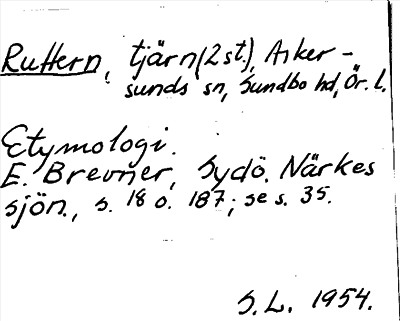 Ruttern, tjärn (2 st.), Asker-
sunds sn, Sundbo hd, Ör. l.
Etymologi.
E. Brevner, Sydö. Närkes
sjön., s. 18 o. 187; se s. 35.
S.L. 1954.